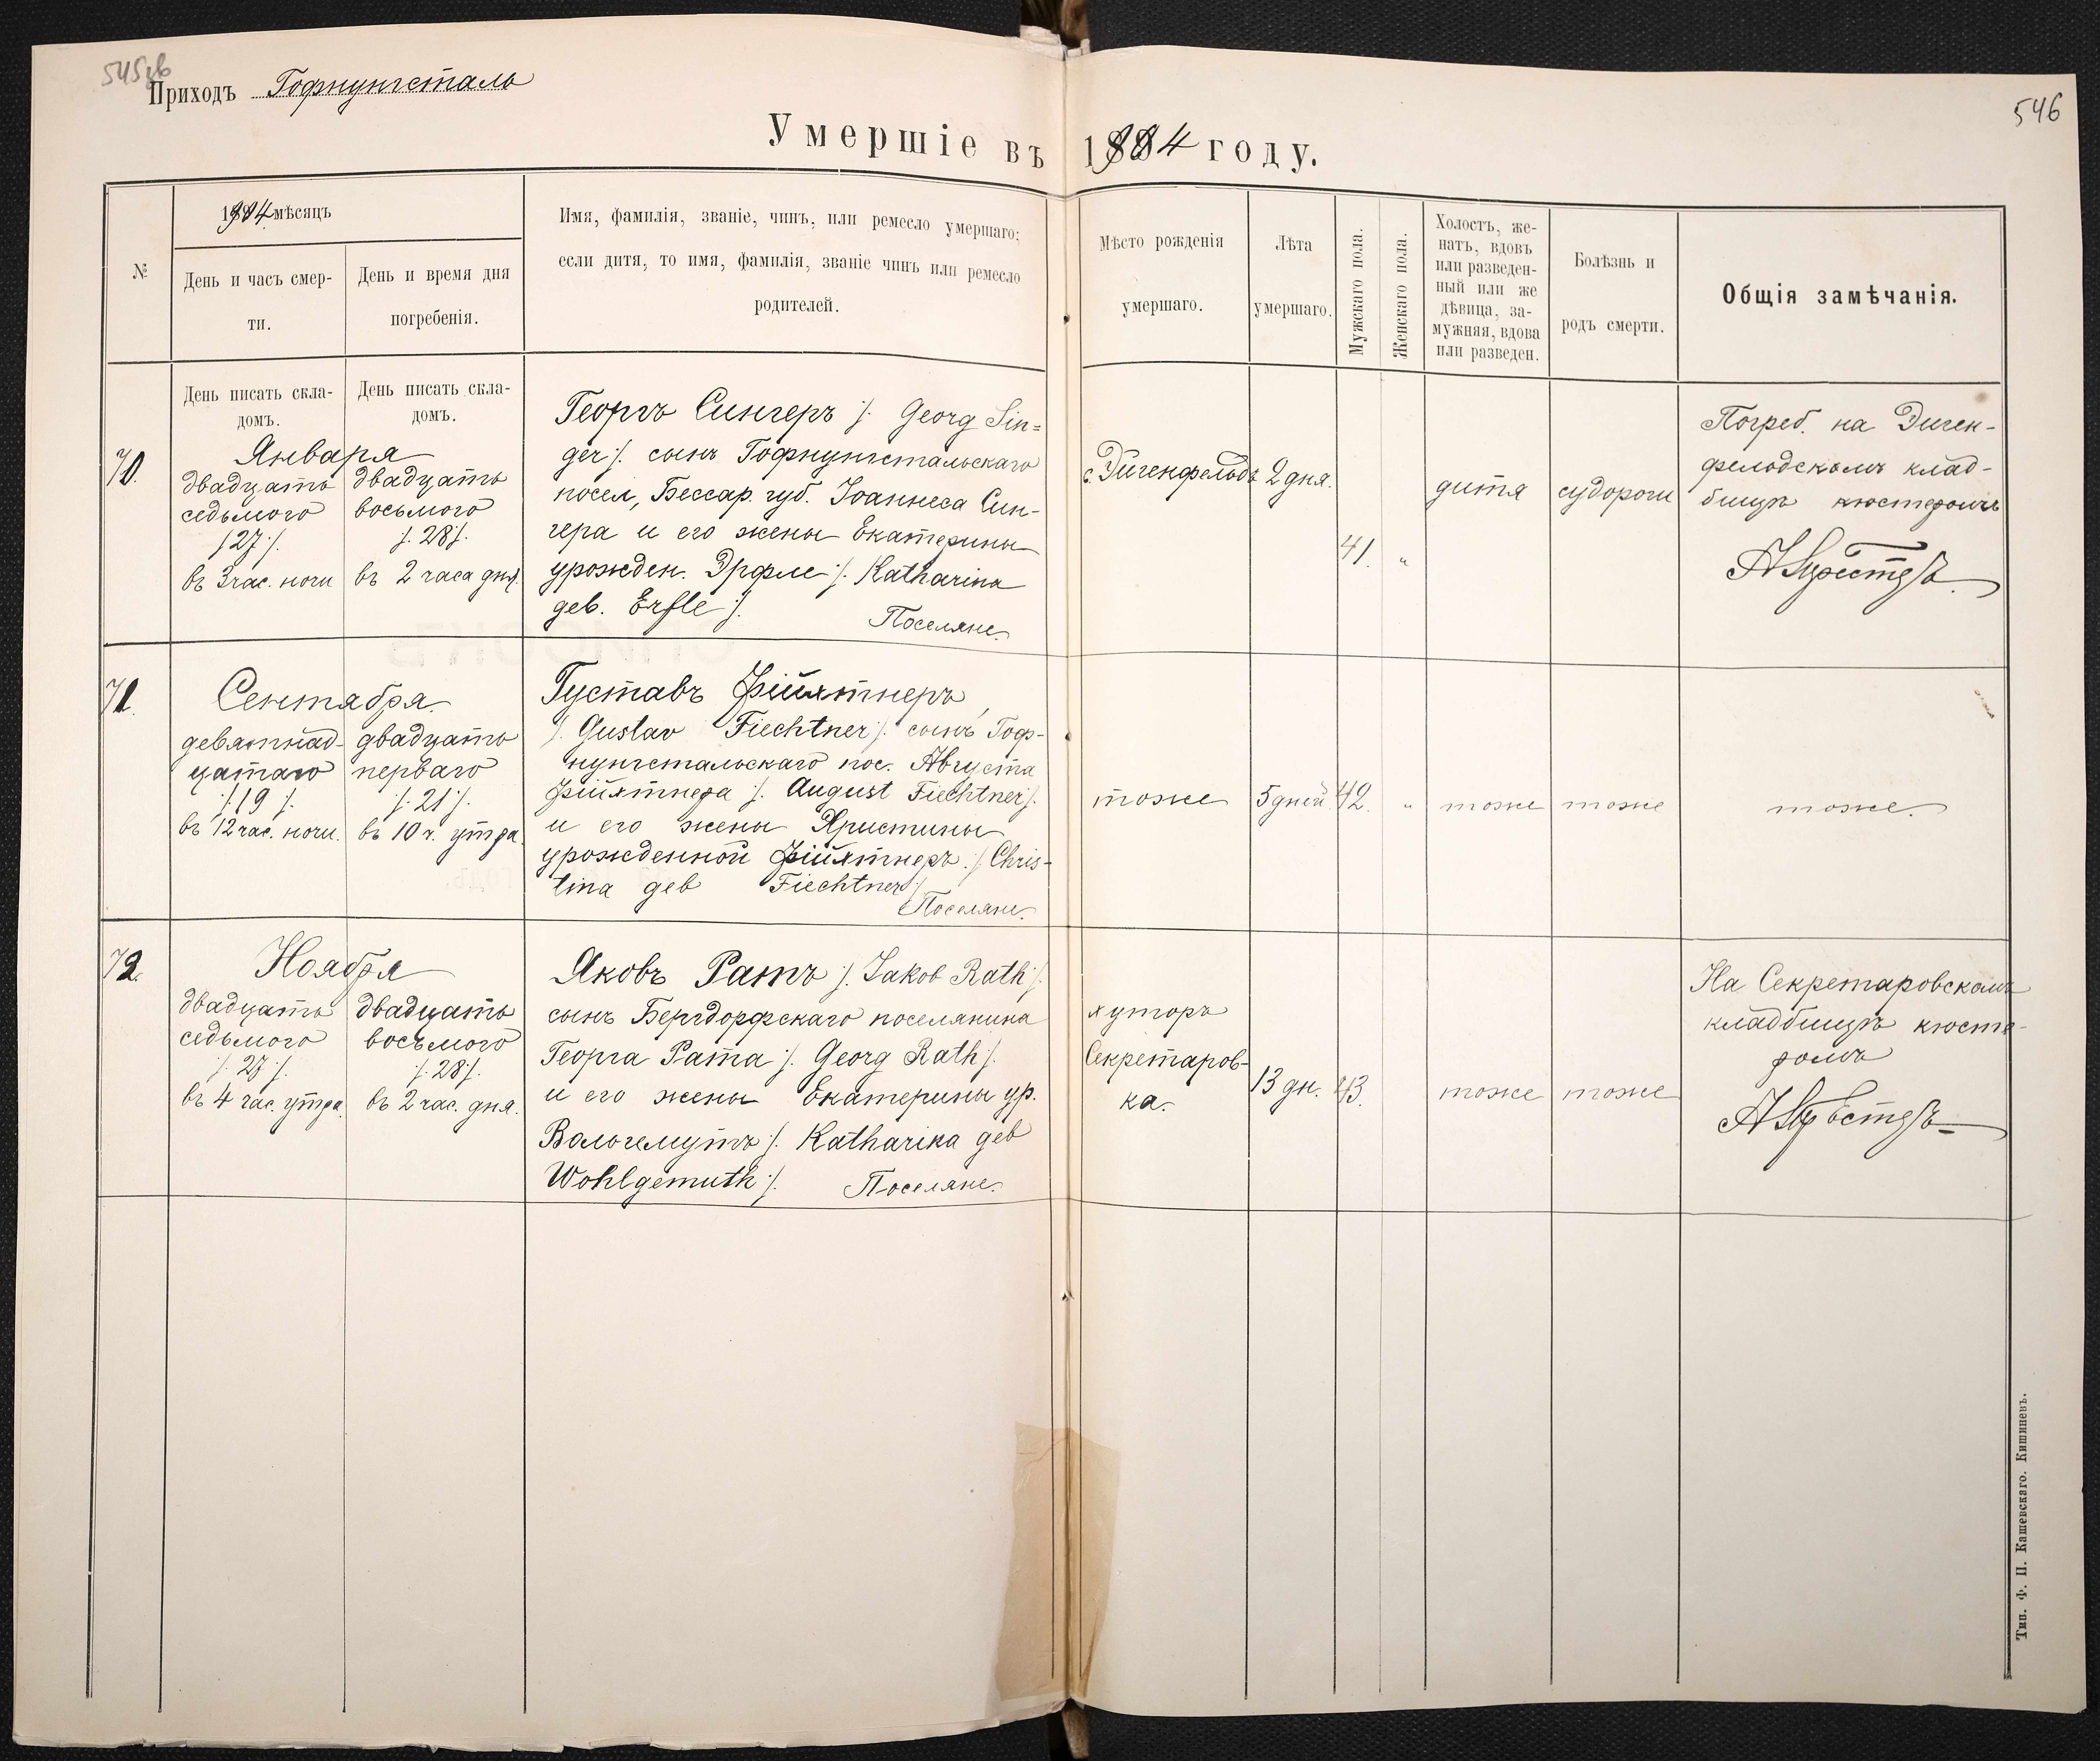 545об
Приходъ Гофнунгсталь
546
Умершіе въ 1904 году.
№
1904 мѣсяцъ
День и часъ смер-
ти.
День и время дня
погребенія.
Имя, фамилія, званіе, чинъ, или ремесло умершаго;
если дитя, то имя, фамилія, званіе чинъ или ремесло
родителей.
Мѣсто рожденія
умершаго.
Лѣта
умершаго.
Мужскаго пола.
Женскаго пола.
Холостъ, же-
натъ, вдовъ
или разведен-
ный или же
дѣвица, за-
мужняя, вдова
или разведен.
Болѣзнь и
родъ смерти.
Общія замѣчанія.
День писать скла-
домъ.
День писать скла-
домъ.
70.
Января
двадцать
седьмого
/27/.
въ 3 час. ночи
двадцать
восьмого
/. 28/.
въ 2 часа дня.
Георгъ Сингеръ /. Georg Sin=
ger /. сынъ Гофнунгстальскаго
посел, Бессар. губ. Іоаннеса Син-
гера и его жены Екатерины
урожден. Эрфле /. Katharina
geb. Erfle /.
Поселяне.
с. Дигенфельдъ
2 дня.
41.
"
дитя
судороги
Погреб. на Диген-
фельдскомъ клад-
бищѣ кюстеромъ
71.
Сентября
девятнад-
цатаго
/. 19 /.
въ 12 час. ночи.
двадцать
перваго
/. 21 /.
въ 10 ч. утра.
Густавъ Фійхтнеръ,
/. Gustav Fiechtner /. сынъ Гоф-
нунгстальскаго пос. Августа
Фійхтнера /. August Fiechtner /.
и его жены Христины
урожденной Фійхтнеръ. /. Chris-
tina geb Fiechtner /.
Поселяне.
тоже
5 дней
42.
"
тоже
тоже
тоже.
72.
Ноября
двадцать
седьмого
/. 27 /.
въ 4 час. утра.
двадцать
восьмого
/. 28 /.
въ 2 час. дня.
Яковъ Ратъ /. Jakob Rath /.
сынъ Бергдорфскаго поселянина
Георга Рата /. Georg Rath /.
и его жены Екатерины ур.
Вольгемутъ /. Katharina geb
Wohlgemuth /.
Поселяне.
хуторъ
Секретаров-
ка.
13 дн.
43.
тоже
тоже
На Секретаровскомъ
кладбищѣ кюсте-
ромъ
Тип. Ф. П. Кашевскаго. Кишиневъ.